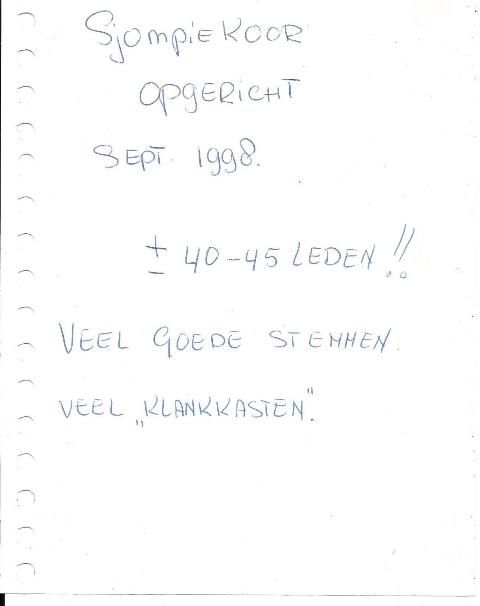 SjompiEKOOR
OPGERICHT
SEPT. 1998.
± 40-45 LEDEN!!
VEEL GOEDE STEMMEN.
VEEL „KLANKKASTEN".